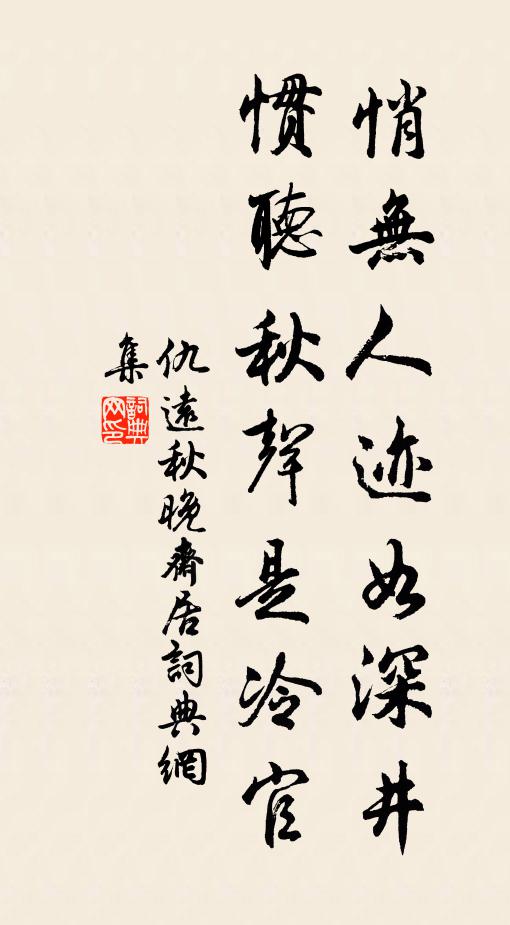 悄無人迹如深井
慣聽秋聲是冷官
仇遠秋晚齋居詞典網
集
詞典
网印